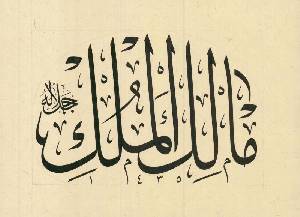 مالك الملك جل جلاله
١٤٣٥